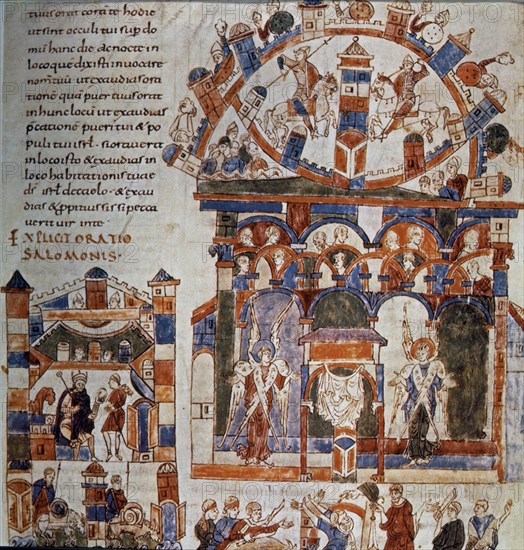 tuusorat corā te hodie
ut sint occuli tui sup do
mū hanc die ac nocte in
loco que dixisti invocare
nomtuū ut exaudias orā
tionē quā puer tuus orat
in hunc locū ut exaudias
pcationē pueri tui & po
puli tui isrł · si oraverit
in loco isto & exaudias in
loco habitationis tuae
dś isrł de caelo · & exau
dias & ppitius sis si pecca
verit vir in te
EXPLICIT ORATIO
SALOMONIS·